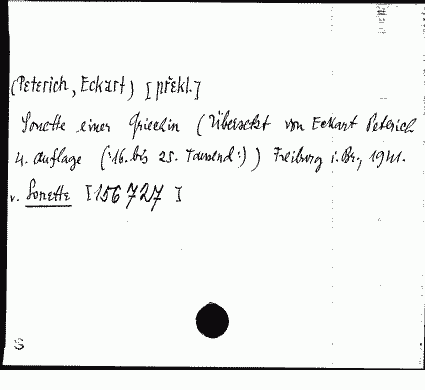 (Peterich, Eckart) [překl.]
Sonette einer Griechin (Übersetzt von Eckart Peterich
4. Auflage (:16. bis 25. Tausend:)) Freiburg i. Br., 1941.
v. Sonette [156727]
S